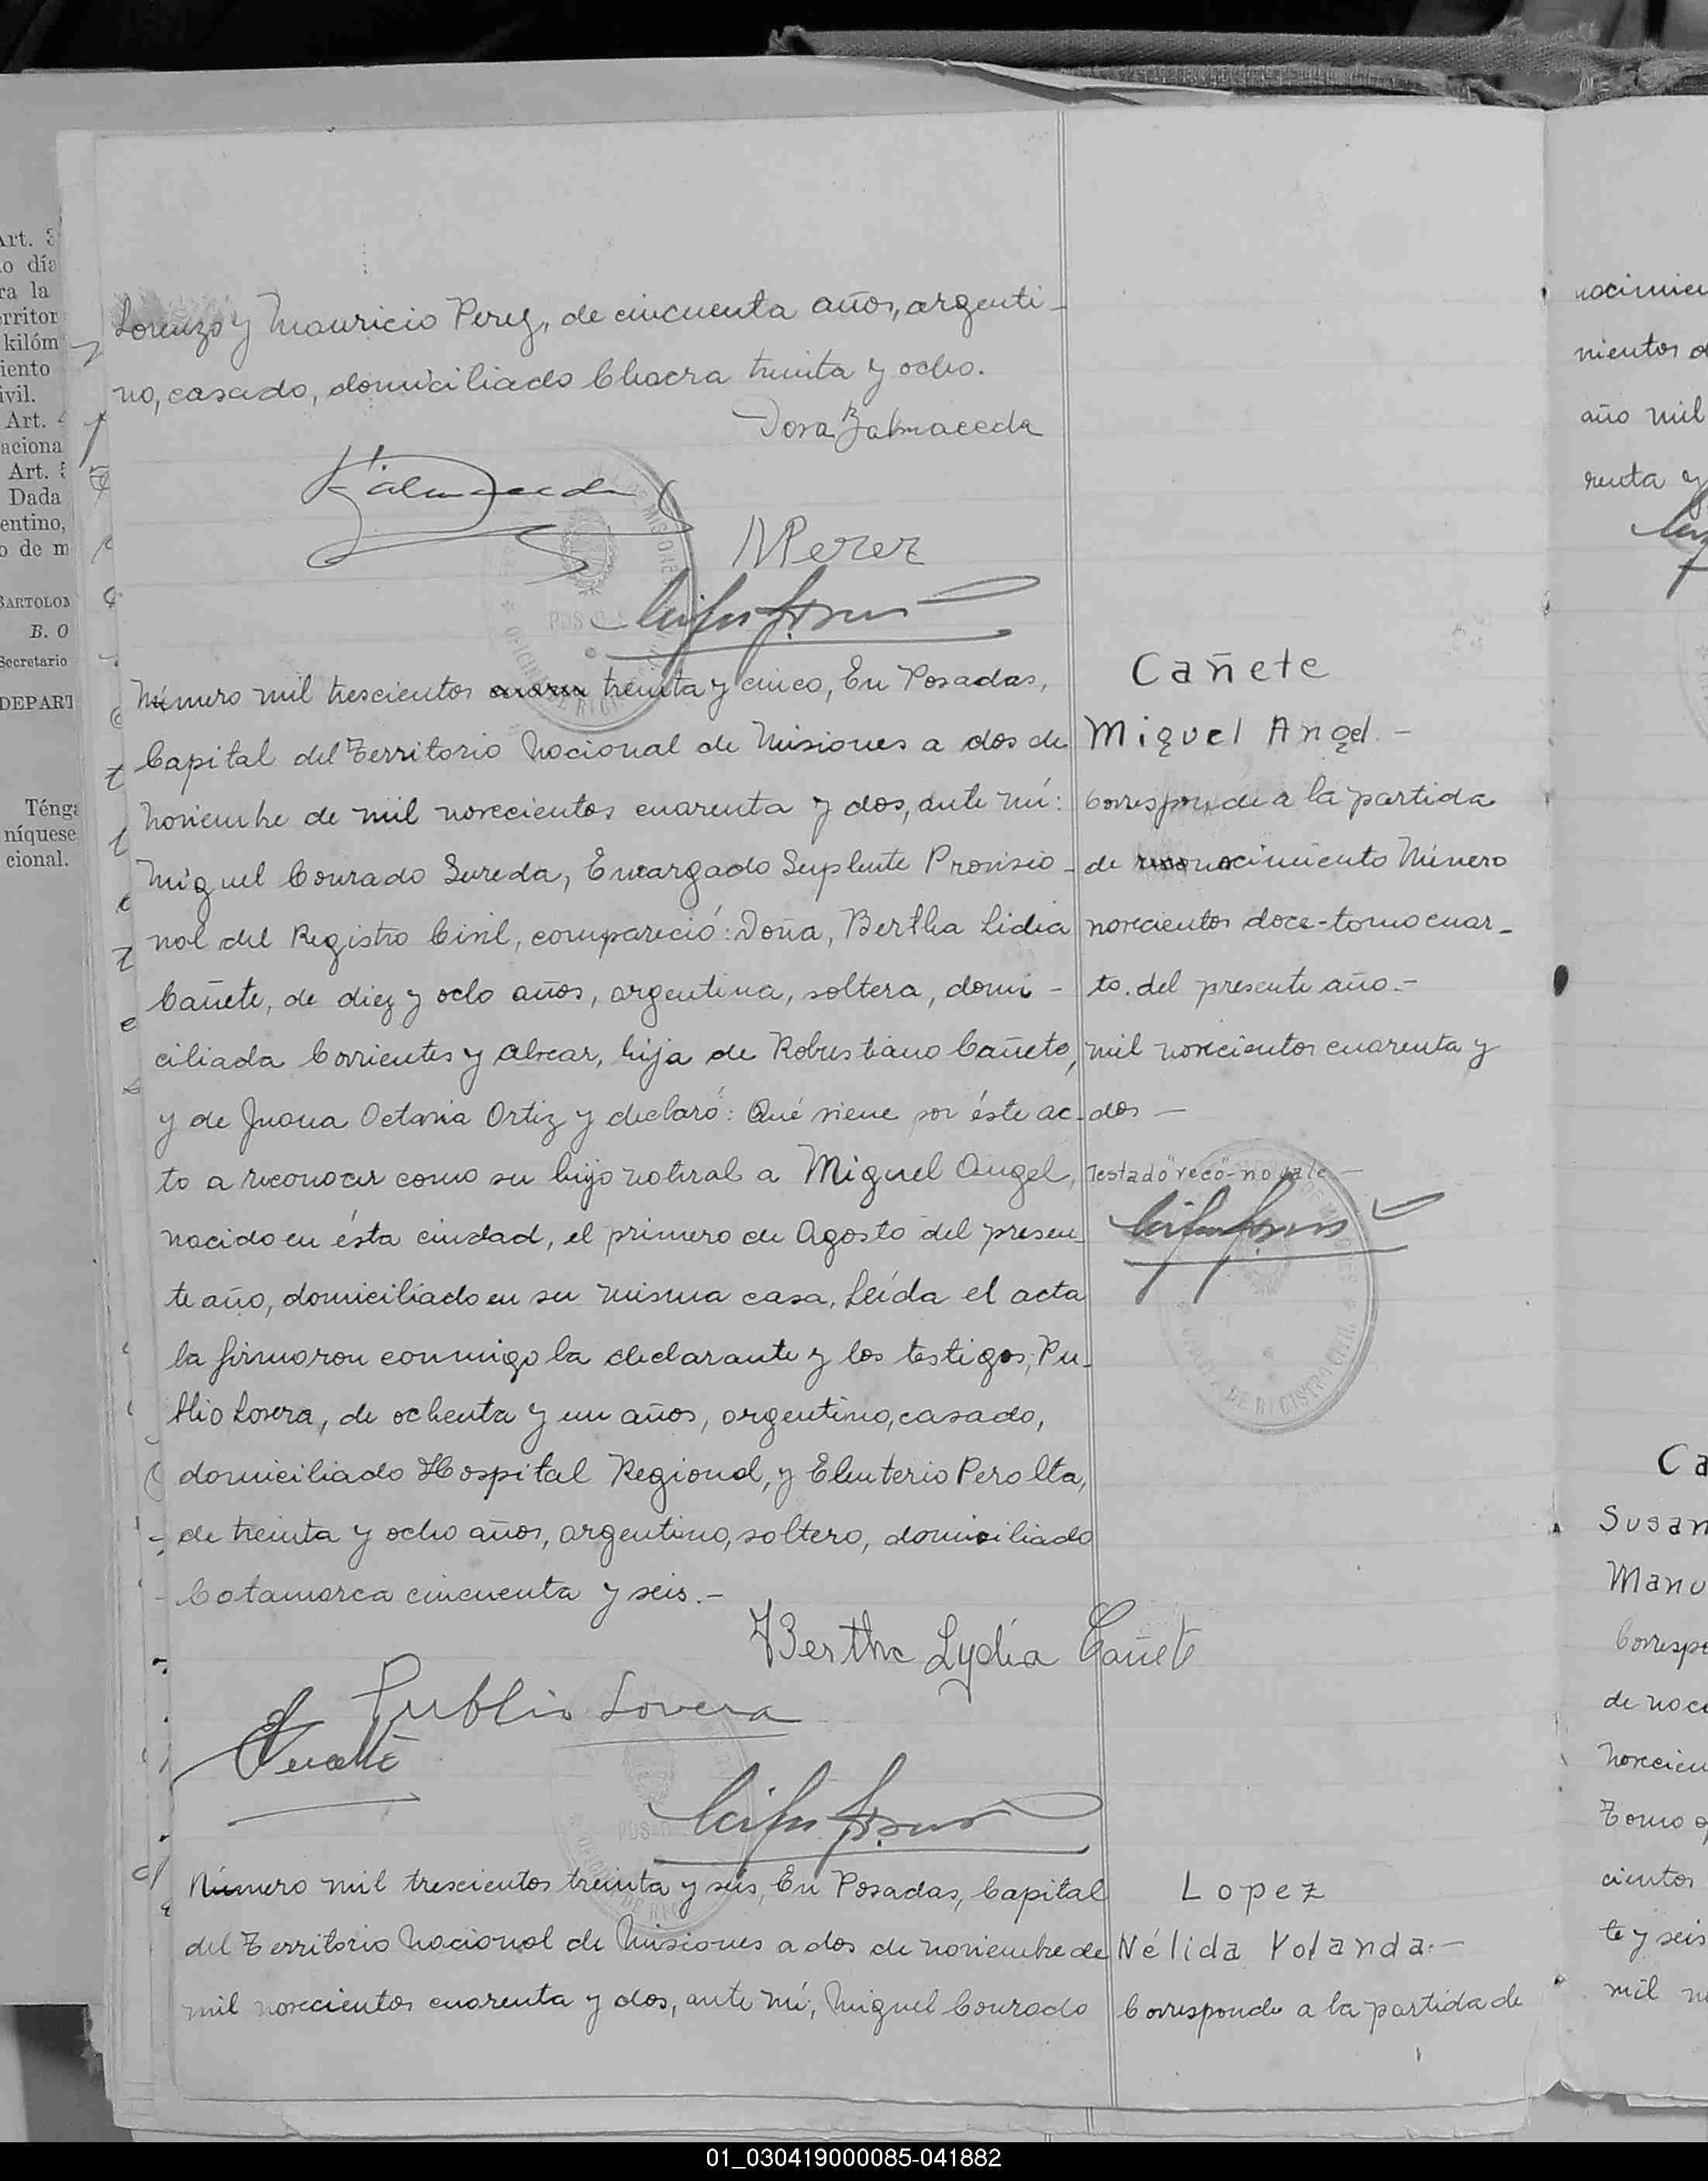 Art. 3
o día
ra la
erritor
kilóm
iento
ivil.
Art. 4
aciona
Art. 5
Dada
entino,
o de m
BARTOLOM
B. O
Secretario
DEPART
Ténga
níquese
cional.
Lorenzo y Mauricio Perez, de cincuenta años, argenti-
no, casado, domiciliado Chacra treinta y ocho.
Dora Balmaceda
Balmaceda
MPerez
Número mil trescientos treinta y cinco, En Posadas,
Capital del Territorio Nacional de Misiones a dos de
noviembre de mil novecientos cuarenta y dos, ante mí:
Miguel Conrado Sureda, Encargado Suplente Provisio-
nal del Registro Civil, compareció: Doña, Bertha Lidia
Cañete, de diez y ocho años, argentina, soltera, domi-
ciliada Corrientes y Alvear, hija de Robustiano Cañete,
y de Juana Octavia Ortiz y declaró: Qué viene por éste ac-
to a reconocer como su hijo natural a Miguel Angel,
nacido en ésta ciudad, el primero de Agosto del presen-
te año, domiciliado en su misma casa, Leída el acta
la firmaron conmigo la declarante y los testigos, Pu-
blio Lovera, de ochenta y un años, argentino, casado,
domiciliado Hospital Regional, y Eleuterio Peralta,
de treinta y ocho años, argentino, soltero, domiciliado
Catamarca cincuenta y seis.-
Bertha Lydia Cañete
Publio Lovera
Número mil trescientos treinta y seis, En Posadas, Capital
del Territorio Nacional de Misiones a dos de noviembre de
mil novecientos cuarenta y dos, ante mí, Miguel Conrado
Cañete
Miguel Angel.-
Corresponde a la partida
de reco nacimiento Número
novecientos doce-tomo cuar-
to. del presente año.-
mil novecientos cuarenta y
dos-
Testado "reco"-no vale-
OFICINA DE REGISTRO CIVIL
Lopez
Nélida Yolanda.-
Corresponde a la partida de
nocimien
nientos d
año mil
renta y
Ca
Susan
Manu
Corresp
de naci
novecien
Tomo
cientos
te y seis
mil n
01_030419000085-041882